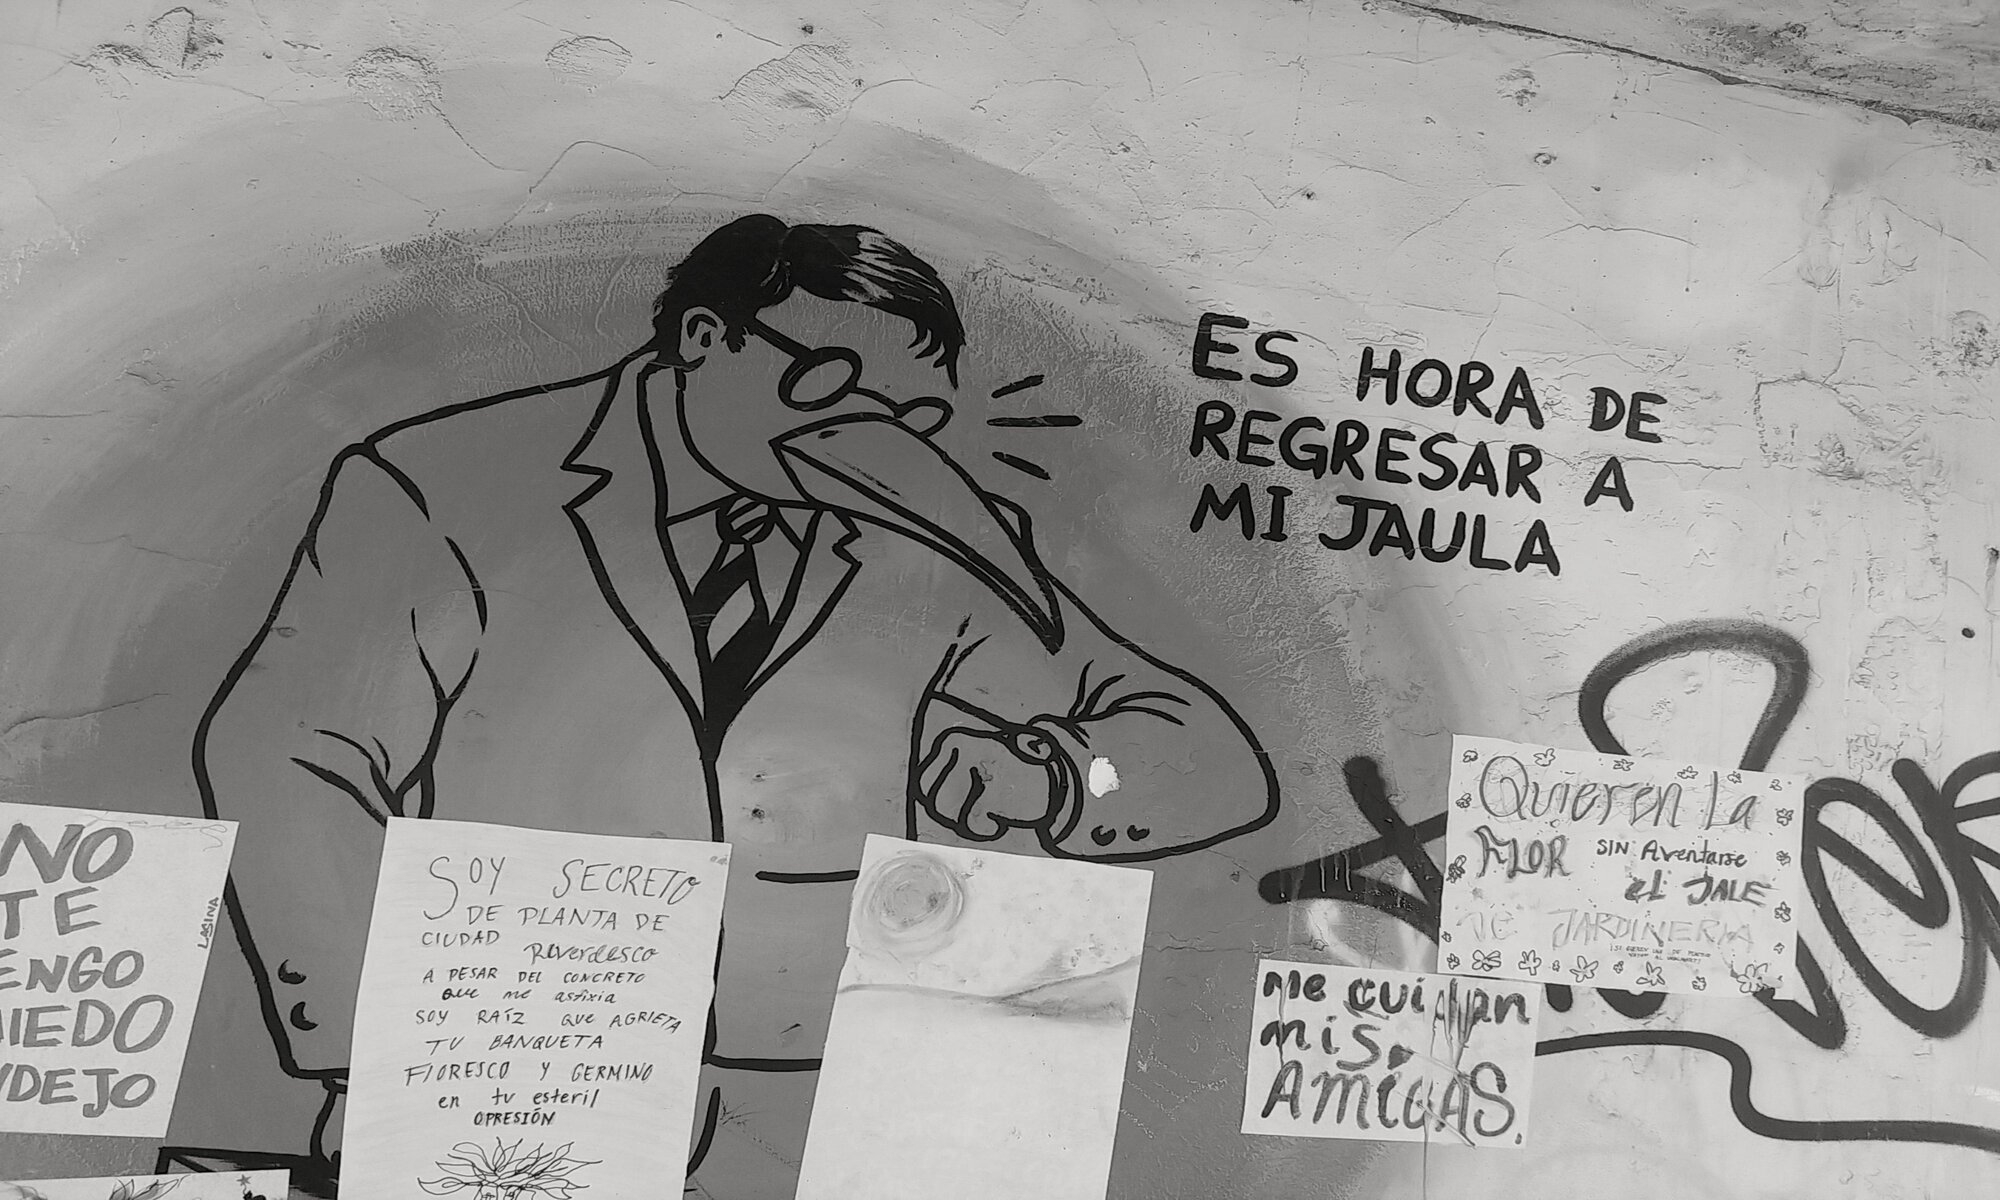 ES HORA DE
REGRESAR A
MI JAULA
NO
TE
ENGO
MIEDO
NDEJO
LASINA
SOY SECRETO
DE PLANTA DE
CIUDAD Reverdesco
A PESAR DEL CONCRETO
que me asfixia
SOY RAÍZ QUE AGRIETA
TU BANQUETA
FlORESCO Y GERMINO
en tu esteril
OPRESIÓN
Quieren la
FLOR SIN Aventarse
EL JALE
DE JARDINERIA
Me cuidan
mis
AMIGAS.